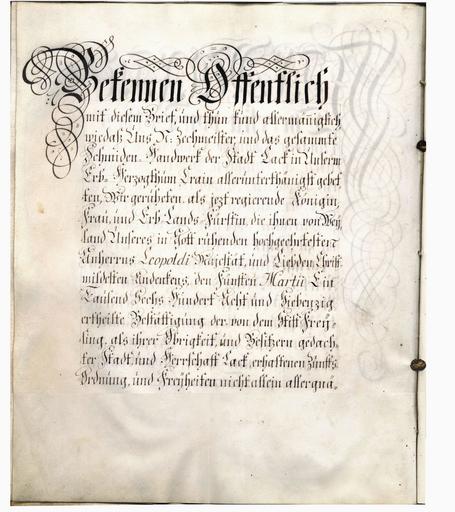 Bekennen Offentlich
mit diesem Brief, und thun kund allermäniglich
wie daß Uns N: Zechmeister, und das gesammte
Schniden-Handwerk der Stadt Lack in Unserm
Erb-Herzogthum Crain allerunterthänigst gebet-
ten, Wir geruheten, als jezt regierende Königin,
Frau, und Erb-Lands-Fürstin, die ihnen von Wey-
land Unseres in Gott ruhenden hochgeehrtesten
Anherrns Leopoldi Majestät, und Liebden Christ-
mildesten Andenkens, den Fünften Martii Ein
Tausend Sechs Hundert Acht und Siebenzig
ertheilte Bestättigung der von dem Stift Frey-
sing, als ihrer Obrigkeit, und Besitzern gedach-
ter Stadt, und Herrschaft Lack, erhaltenen Zunfts-
Ordnung, und Freyheiten nicht allein allergnä-